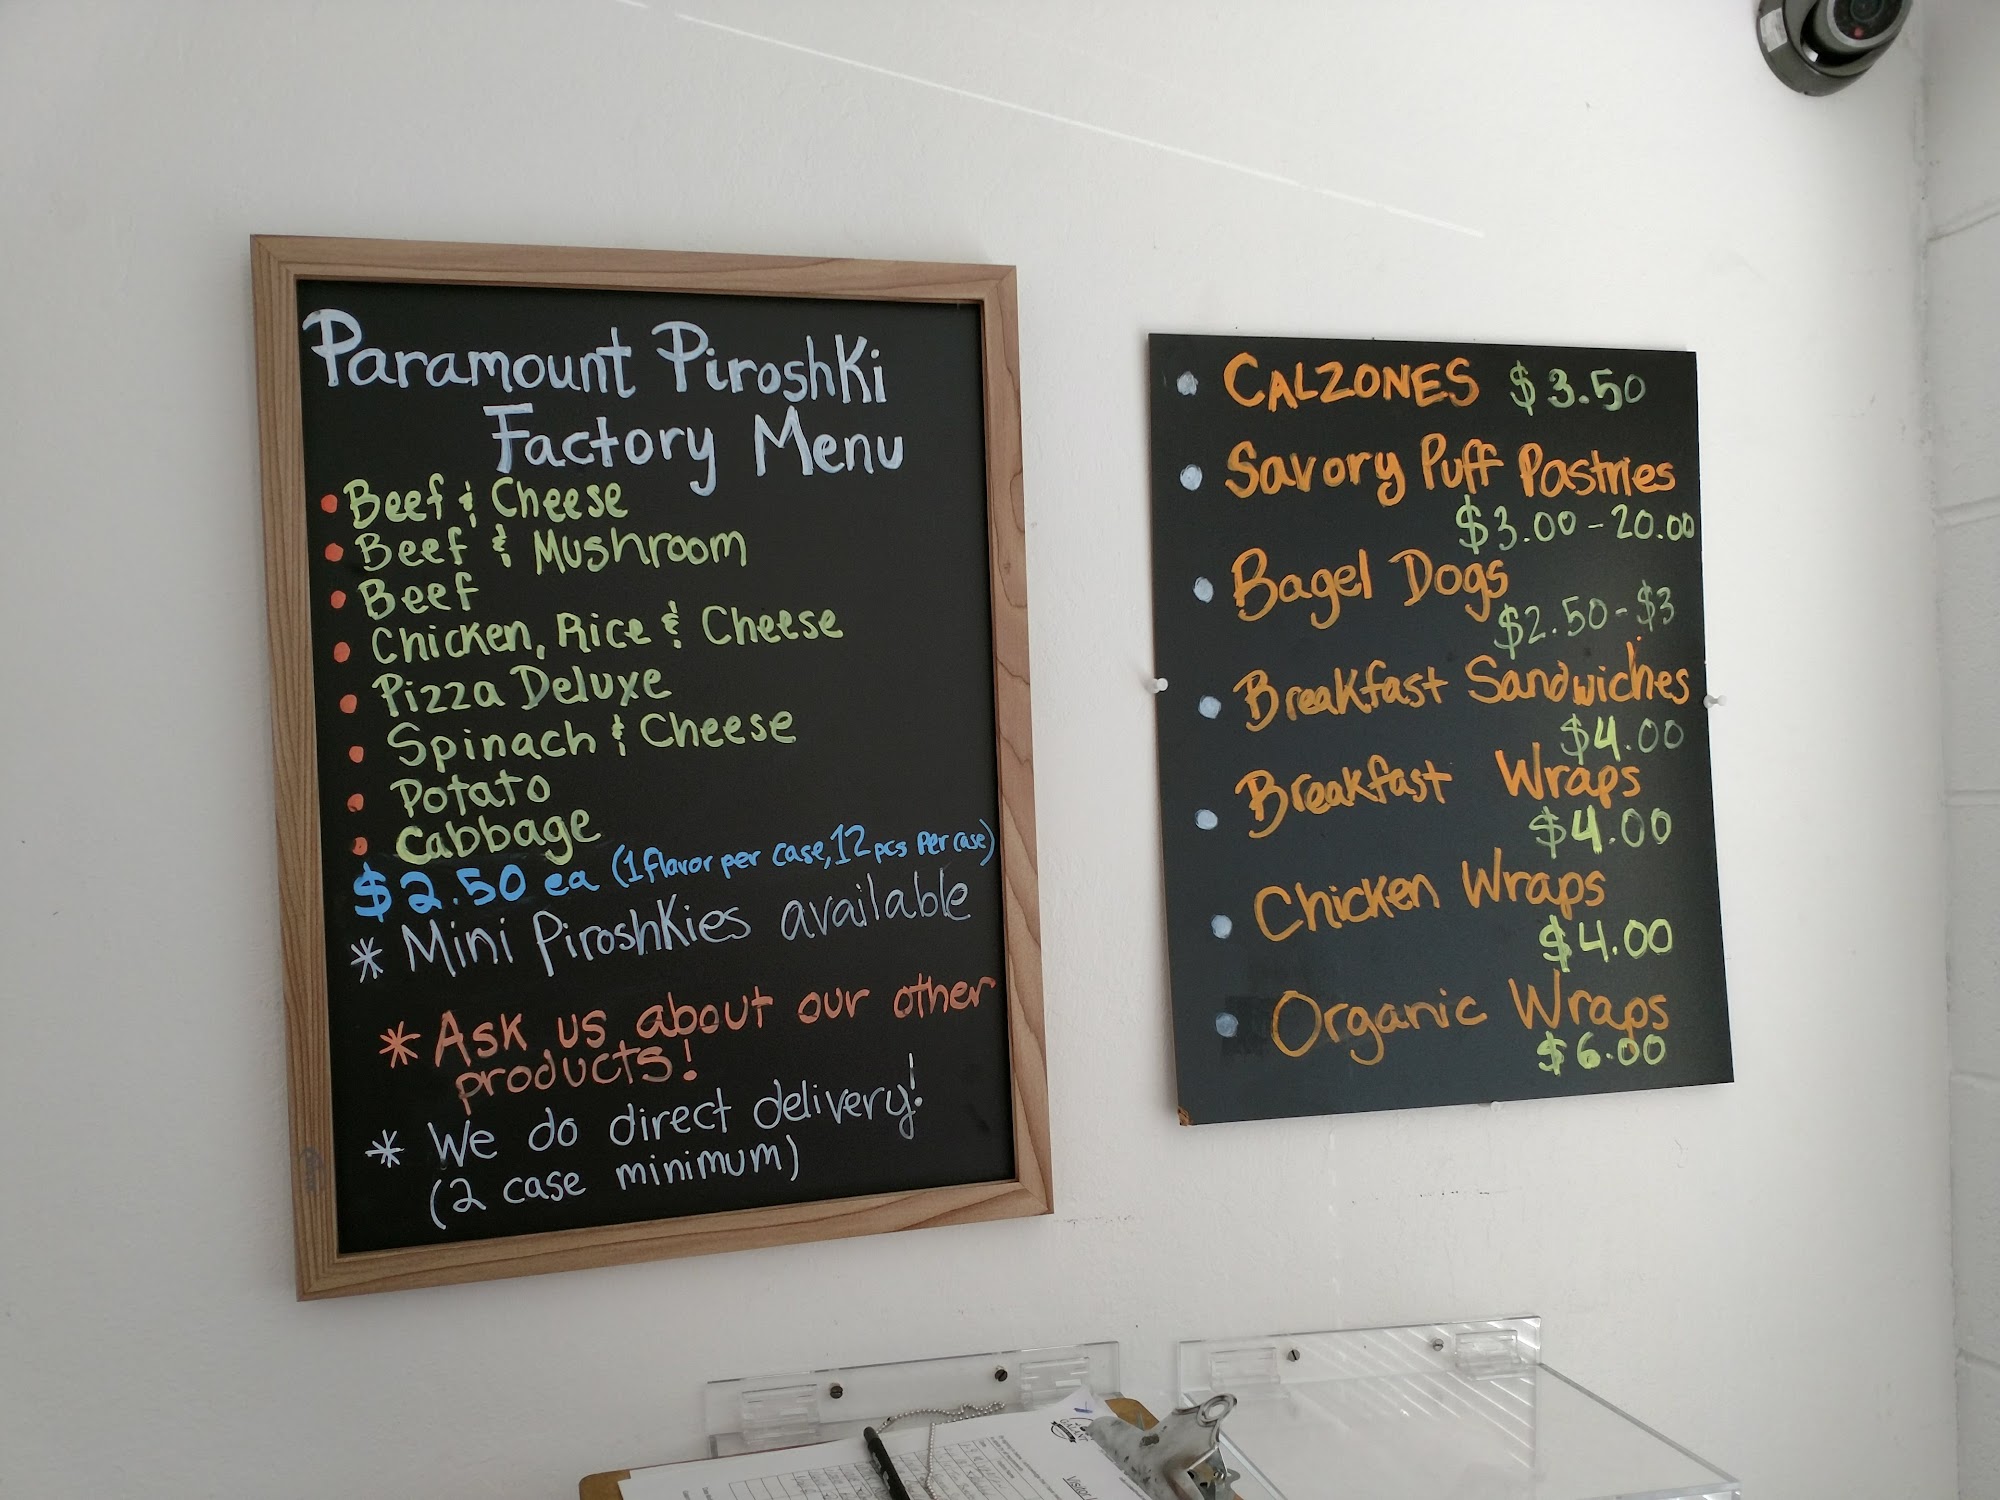 Paramount Piroshki
Factory Menu
• Beef & Cheese
• Beef & Mushroom
• Beef
• Chicken, Rice & Cheese
• Pizza Deluxe
• Spinach & Cheese
• Potato
• Cabbage
$2.50 ea (1 flavor per case, 12 pcs per case)
* Mini Piroshkies available
* Ask us about our other
products!
* We do direct delivery!
(2 case minimum)
• CALZONES $3.50
• Savory Puff Pastries
$3.00-20.00
• Bagel Dogs
$2.50-$3
• Breakfast Sandwiches
$4.00
• Breakfast Wraps
$4.00
• Chicken Wraps
$4.00
• Organic Wraps
$6.00
GALANT
Visitor